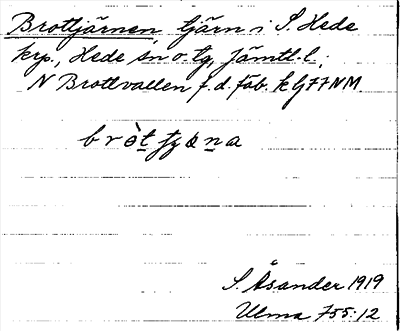 Brottjärnen tjärn i S. Hede
krp., Hede sn o tg, Jämtl. l.,
N Brottvallen f. d. fäb.
S. Åsander 1919
Ulma 755:12